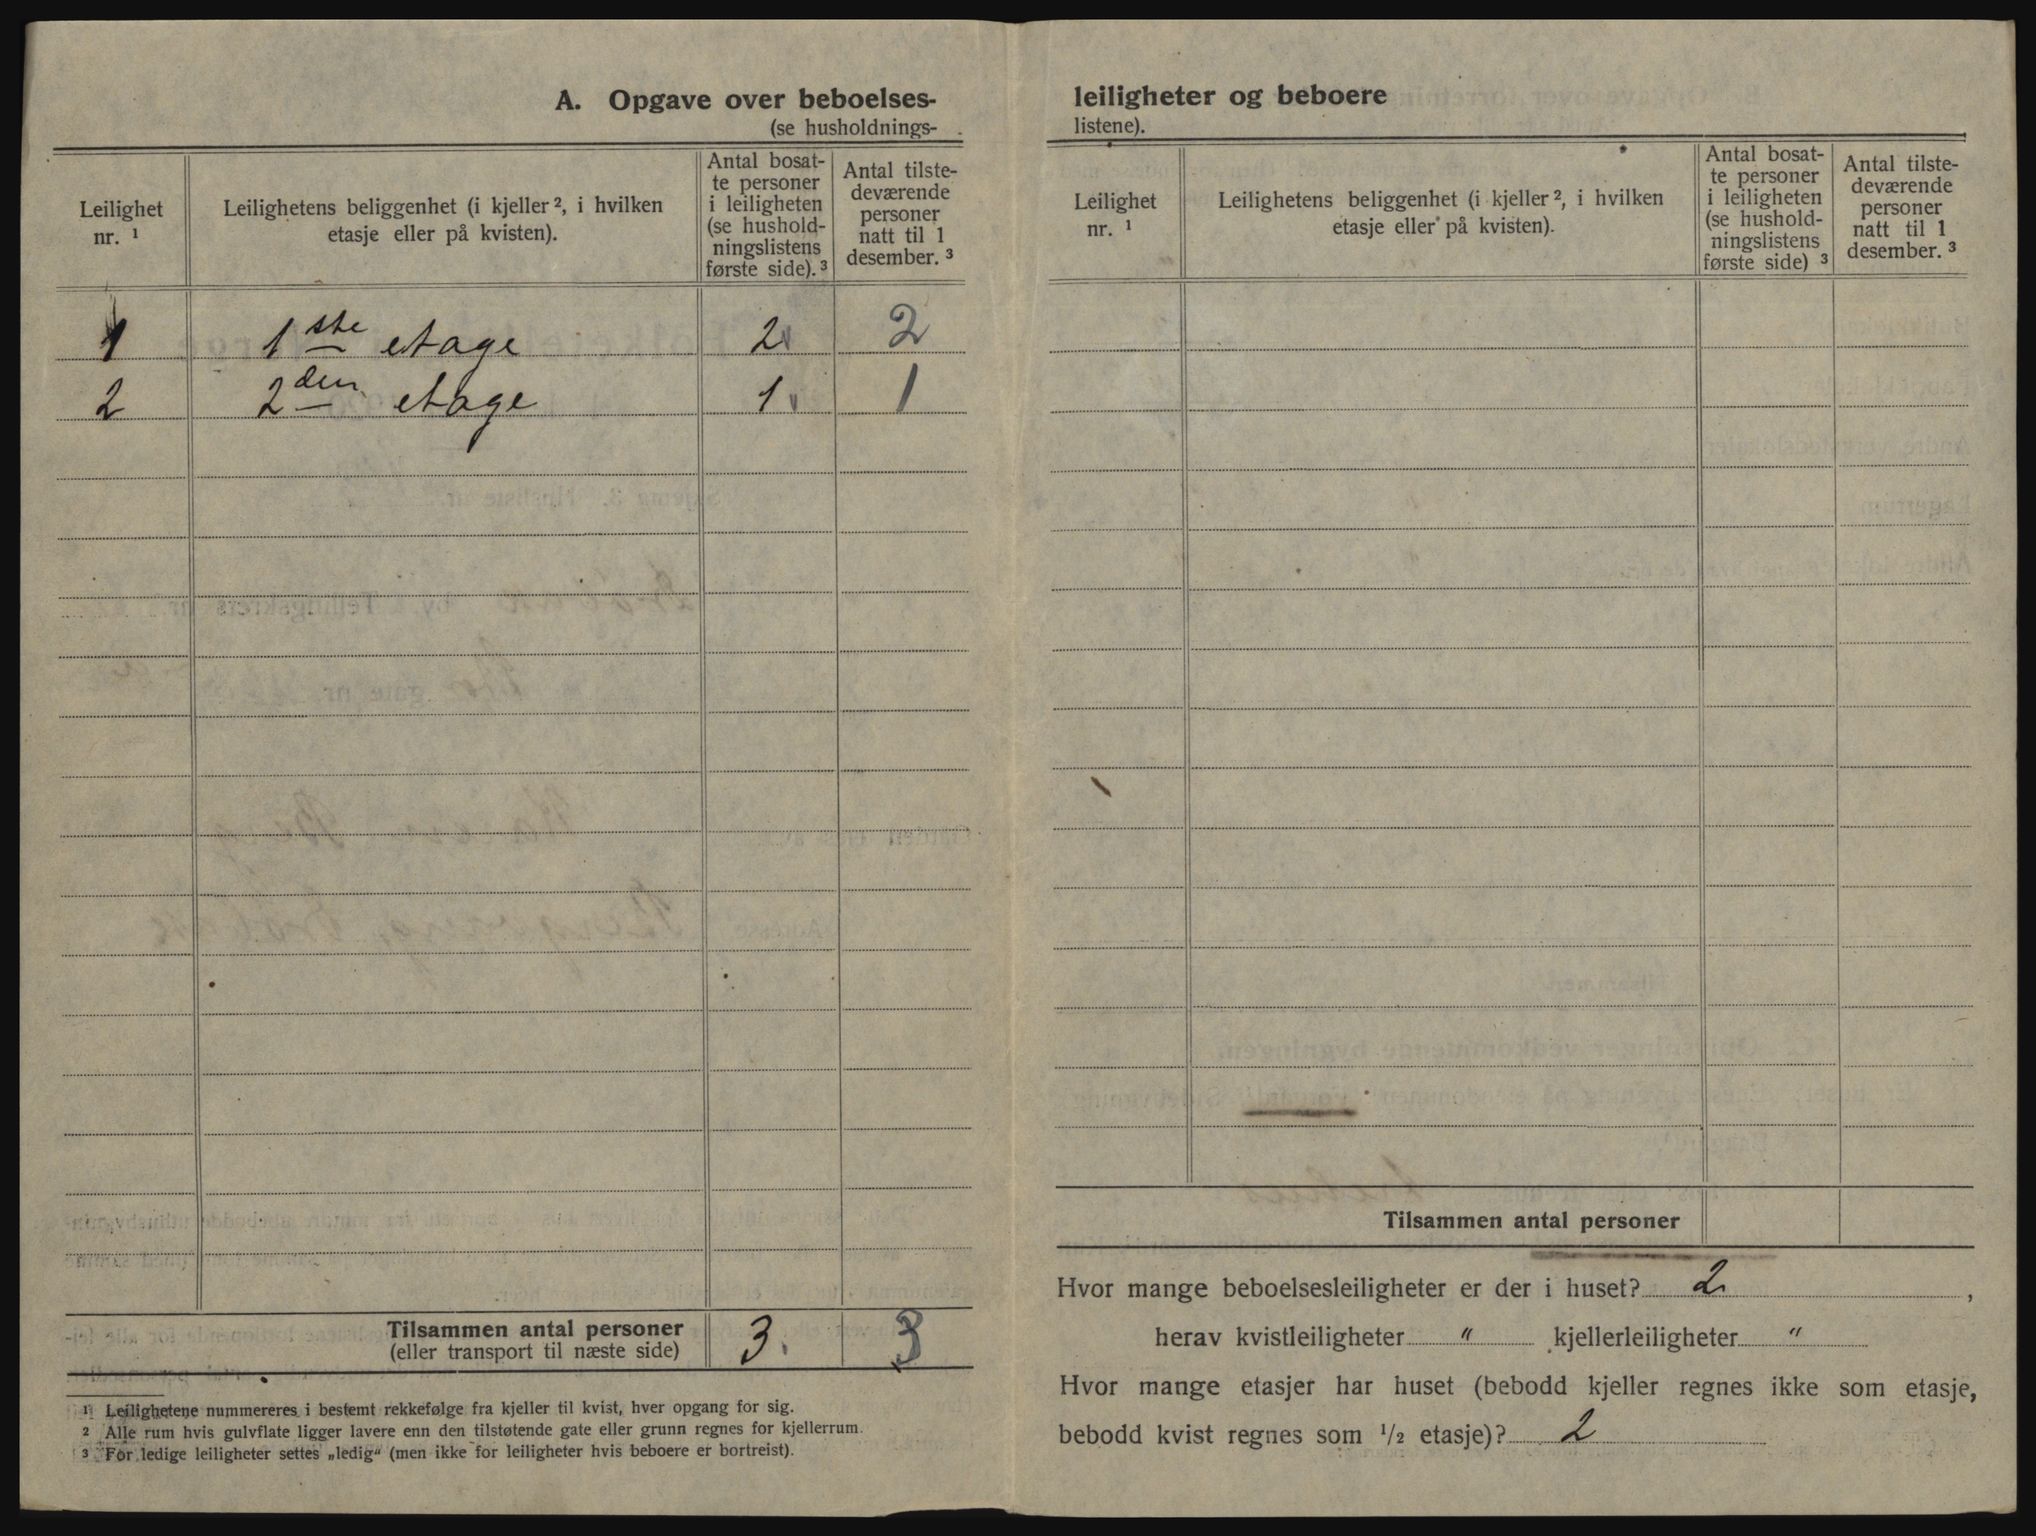 A. Opgave over beboelses-
(se husholdnings-
Leilighet
nr. ¹
Leilighetens beliggenhet (i kjeller ², i hvilken
etasje eller på kvisten).
Antal bosat-
te personer
i leiligheten
(se hushold-
ningslistens
første side). ³
Antal tilste-
deværende
personer
natt til 1
desember. ³
1 1ste etage 2 2
2 2den etage 1 1
Tilsammen antal personer 3 3
(eller transport til næste side)
1 Leilighetene nummereres i bestemt rekkefølge fra kjeller til kvist, hver opgang for sig.
2 Alle rum hvis gulvflate ligger lavere enn den tilstøtende gate eller grunn regnes for kjellerrum.
3 For ledige leiligheter settes „ledig“ (men ikke for leiligheter hvis beboere er bortreist).
leiligheter og beboere
listene).
Leilighet
nr. ¹
Leilighetens beliggenhet (i kjeller ², i hvilken
etasje eller på kvisten).
Antal bosat-
te personer
i leiligheten
(se hushold-
ningslistens
første side) ³
Antal tilste-
deværende
personer
natt til 1
desember. ³
Tilsammen antal personer
Hvor mange beboelsesleiligheter er der i huset? 2,
herav kvistleiligheter " kjellerleiligheter "
Hvor mange etasjer har huset (bebodd kjeller regnes ikke som etasje,
bebodd kvist regnes som ½ etasje)? 2